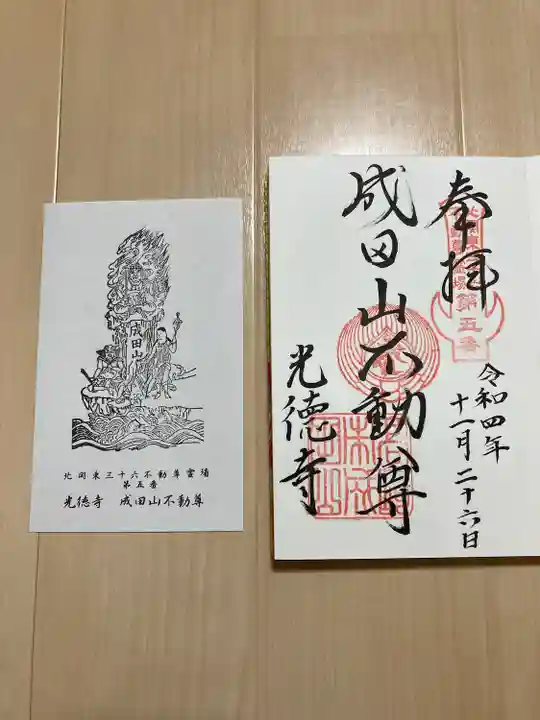 成田山
北関東三十六不動尊霊場
第五番
光徳寺 成田山不動尊
奉拝
第五番
令和四年
十一月二十六日
成田山不動尊
光徳寺